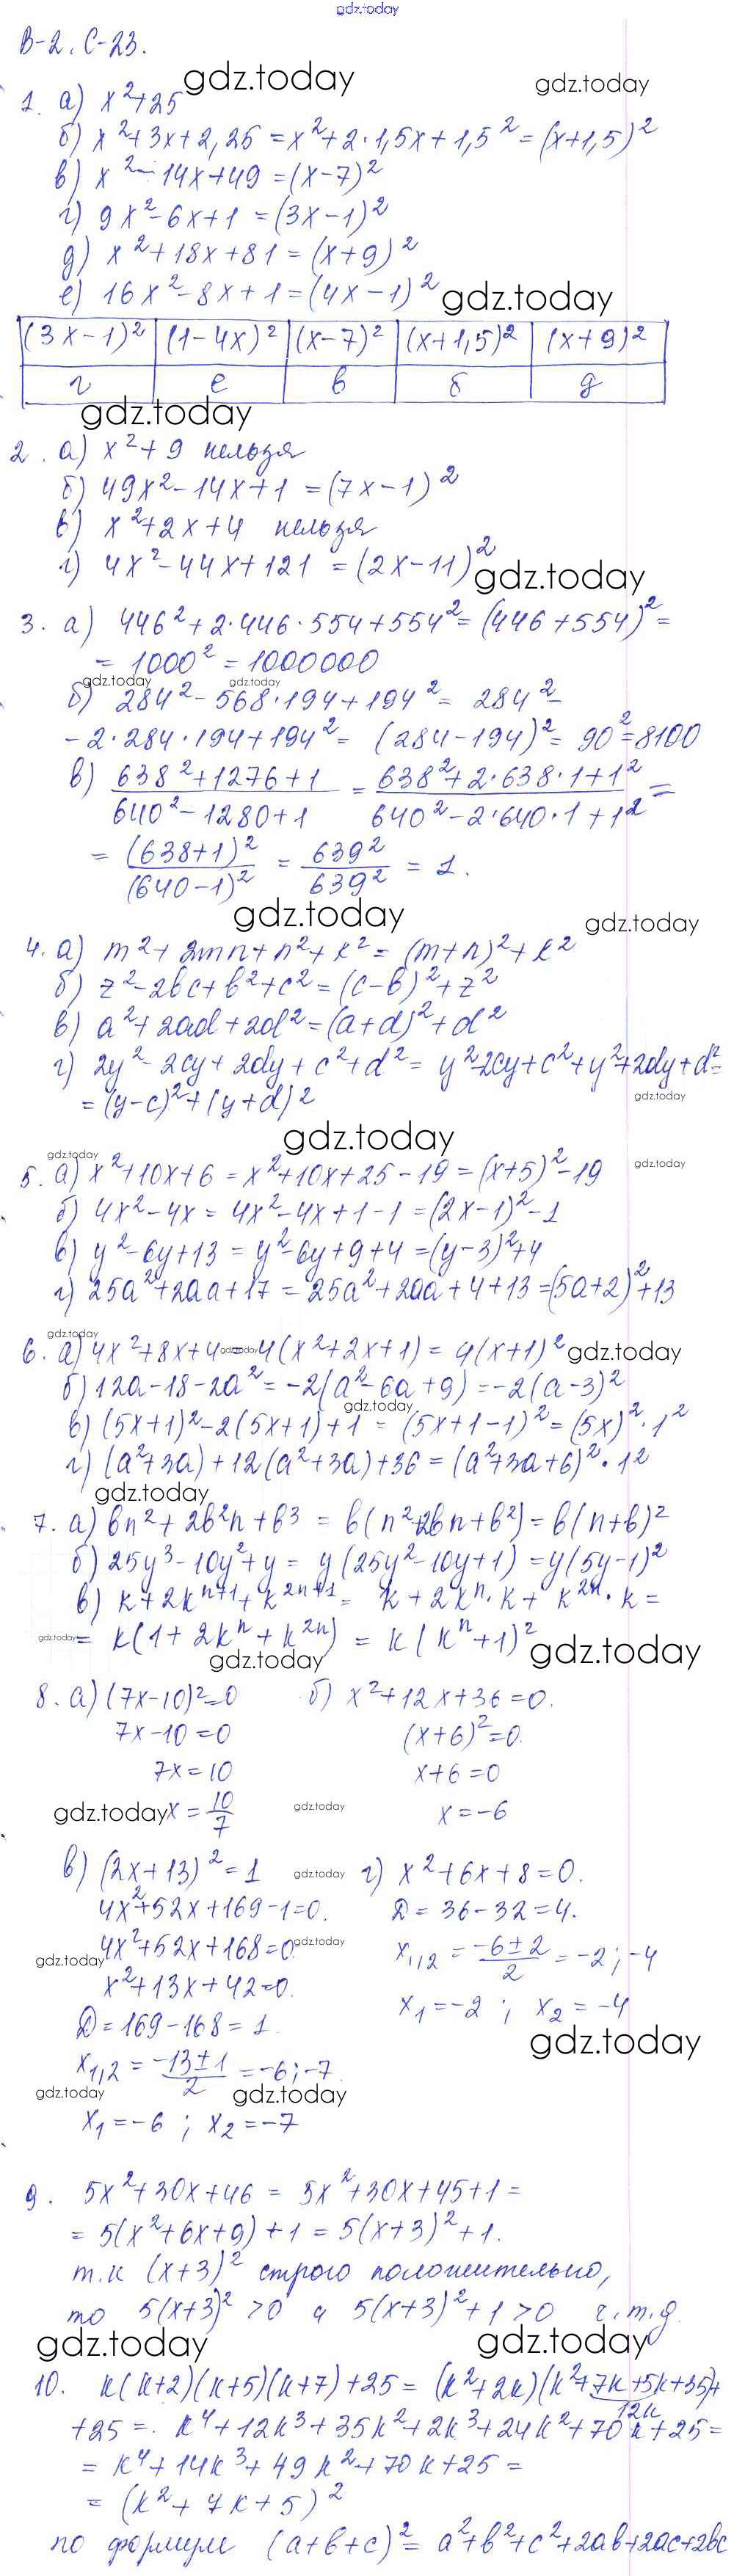 gdz.today
В-2. С-23.
gdz.today gdz.today
1. а) x²+25
б) x²+3x+2,25 = x²+2·1,5x+1,5² = (x+1,5)²
в) x²-14x+49 = (x-7)²
г) 9x²-6x+1 = (3x-1)²
д) x²+18x+81 = (x+9)²
е) 16x²-8x+1 = (4x-1)² gdz.today
(3x-1)² (1-4x)² (x-7)² (x+1,5)² (x+9)²
г е в б д
gdz.today
2. а) x²+9 нельзя
б) 49x²-14x+1 = (7x-1)²
в) x²+2x+4 нельзя
г) 4x²-44x+121 = (2x-11)²
gdz.today
3. а) 446²+2·446·554+554² = (446+554)² =
= 1000² = 1000000
gdz.today gdz.today
б) 284²-568·194+194² = 284²-
-2·284·194+194² = (284-194)² = 90² = 8100
в) (638²+1276+1)/(640²-1280+1) = (638²+2·638·1+1²)/(640²-2·640·1+1²) =
= (638+1)²/(640-1)² = 639²/639² = 1.
gdz.today gdz.today
4. а) m²+2mn+n²+k² = (m+n)²+k²
б) z²-2bc+b²+c² = (c-b)²+z²
в) a²+2ad+2d² = (a+d)²+d²
г) 2y²-2cy+2dy+c²+d² = y²-2cy+c²+y²+2dy+d² =
= (y-c)²+(y+d)² gdz.today
gdz.today
gdz.today gdz.today
5. а) x²+10x+6 = x²+10x+25-19 = (x+5)²-19
б) 4x²-4x = 4x²-4x+1-1 = (2x-1)²-1
в) y²-6y+13 = y²-6y+9+4 = (y-3)²+4
г) 25a²+20a+17 = 25a²+20a+4+13 = (5a+2)²+13
gdz.today
6. а) 4x²+8x+4 = 4(x²+2x+1) = 4(x+1)² gdz.today gdz.today
б) 12a-18-2a² = -2(a²-6a+9) = -2(a-3)²
gdz.today
в) (5x+1)²-2(5x+1)+1 = (5x+1-1)² = (5x)²·1²
г) (a²+3a)+12(a²+3a)+36 = (a²+3a+6)²·1²
gdz.today
7. а) bn²+2b²n+b³ = b(n²+2bn+b²) = b(n+b)²
б) 25y³-10y²+y = y(25y²-10y+1) = y(5y-1)²
в) k+2kⁿ⁺¹+k²ⁿ⁺¹ = k+2kⁿ·k+k²ⁿ·k =
gdz.today = k(1+2kⁿ+k²ⁿ) = k(kⁿ+1)²
gdz.today gdz.today
8. а) (7x-10)²=0 б) x²+12x+36=0.
7x-10=0 (x+6)²=0.
7x=10 x+6=0
gdz.today x = 10/7 gdz.today x=-6
в) (2x+13)²=1 gdz.today г) x²+6x+8=0.
4x²+52x+169-1=0. D=36-32=4.
4x²+52x+168=0 gdz.today x₁,₂ = (-6±2)/2 = -2; -4
gdz.today
x²+13x+42=0. x₁=-2; x₂=-4
D=169-168=1. gdz.today
x₁,₂ = (-13±1)/2 = -6; -7.
gdz.today gdz.today
x₁=-6; x₂=-7
9. 5x²+30x+46 = 5x²+30x+45+1 =
= 5(x²+6x+9)+1 = 5(x+3)²+1.
т.к (x+3)² строго положительно,
то 5(x+3)²>0 и 5(x+3)²+1>0 ч.т.д.
gdz.today gdz.today
10. k(k+2)(k+5)(k+7)+25 = (k²+2k)(k²+7k+5k+35)+
12k
+25 = k⁴+12k³+35k²+2k³+24k²+70k+25 =
= k⁴+14k³+49k²+70k+25 =
= (k²+7k+5)²
по формуле (a+b+c)² = a²+b²+c²+2ab+2ac+2bc